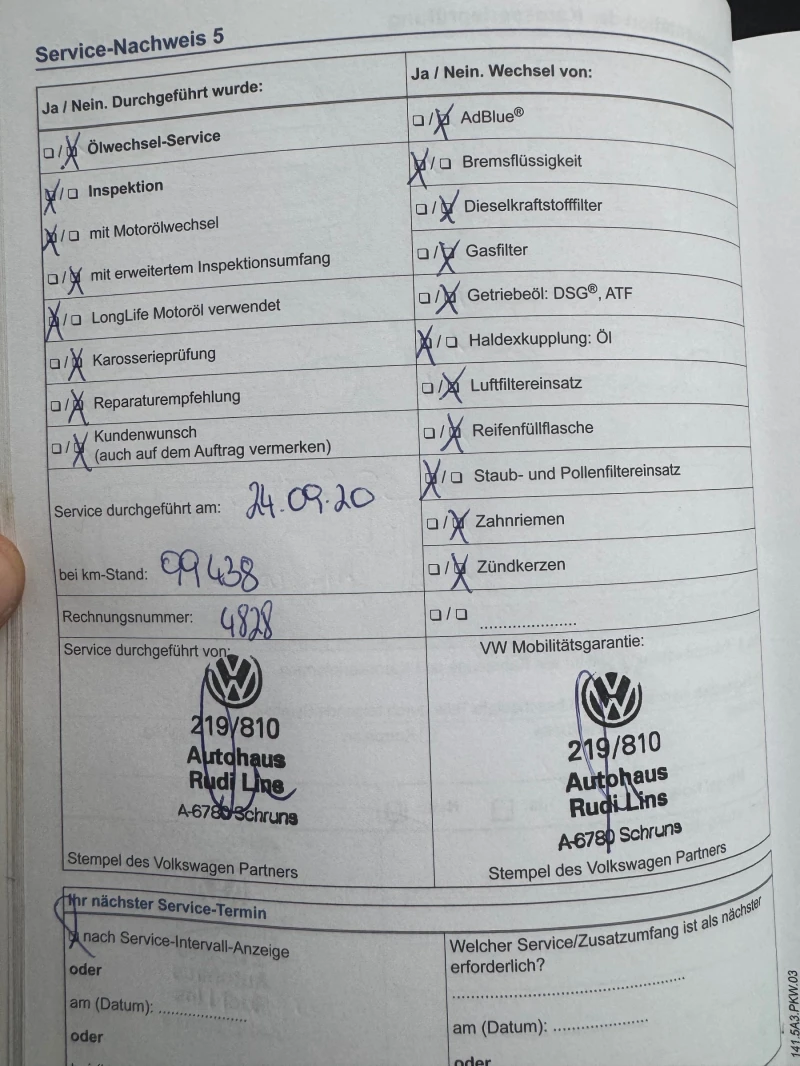 Service-Nachweis 5
Ja / Nein. Durchgeführt wurde:
Ölwechsel-Service
Inspektion
mit Motorölwechsel
mit erweitertem Inspektionsumfang
LongLife Motoröl verwendet
Karosserieprüfung
Reparaturempfehlung
Kundenwunsch
(auch auf dem Auftrag vermerken)
Service durchgeführt am: 24.09.20
bei km-Stand: 99438
Rechnungsnummer: 4828
Service durchgeführt von:
219/810
Autohaus
Rudi Lins
A-6780 Schruns
Stempel des Volkswagen Partners
Ja / Nein. Wechsel von:
AdBlue®
Bremsflüssigkeit
Dieselkraftstofffilter
Gasfilter
Getriebeöl: DSG®, ATF
Haldexkupplung: Öl
Luftfiltereinsatz
Reifenfüllflasche
Staub- und Pollenfiltereinsatz
Zahnriemen
Zündkerzen
VW Mobilitätsgarantie:
219/810
Autohaus
Rudi Lins
A-6780 Schruns
Stempel des Volkswagen Partners
Ihr nächster Service-Termin
nach Service-Intervall-Anzeige
oder
am (Datum):
oder
Welcher Service/Zusatzumfang ist als nächster
erforderlich?
am (Datum):
oder
141.5A3.PKW.03